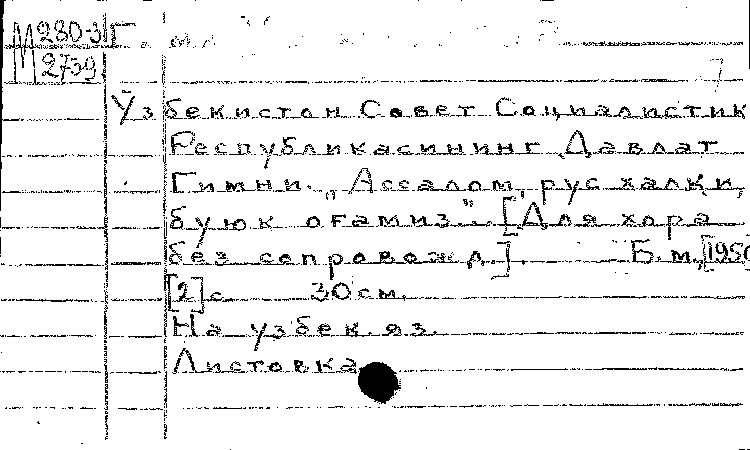 М 280-3
2739
Ӯзбекистон Совет Социалистик
Республикасининг Давлат
Гимни. „Ассалом, рус халқи,
буюк оғамиз"... [Для хора
без сопровожд.]. Б.м., [1950
[2] с 30 см.
На узбек. яз.
Листовка